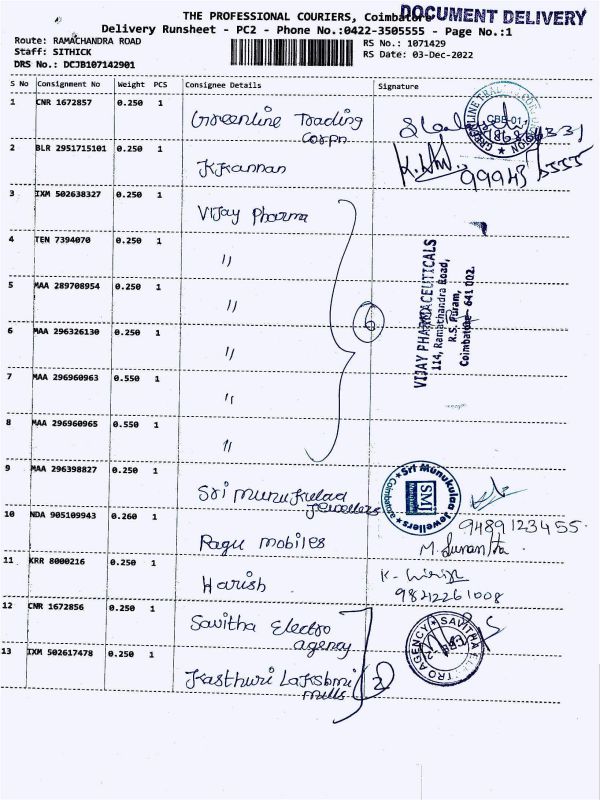 THE PROFESSIONAL COURIERS, Coimbatore
DOCUMENT DELIVERY
Delivery Runsheet - PC2 - Phone No.:0422-3505555 - Page No.:1
Route: RAMACHANDRA ROAD
RS No.: 1071429
Staff: SITHICK
RS Date: 03-Dec-2022
DRS No.: DCJB107142901
S No Consignment No Weight PCS Consignee Details Signature
1 CNR 1672857 0.250 1
Greenline Trading
Corpn
2 BLR 2951715101 0.250 1
K Kannan
3 IXM 502638327 0.250 1
Vijay Pharma
4 TEN 7394070 0.250 1
"
5 MAA 289708954 0.250 1
"
6 MAA 296326130 0.250 1
"
7 MAA 296960963 0.550 1
"
8 MAA 296960965 0.550 1
"
6
VIJAY PHARMACEUTICALS
114, Ramachandra Road,
R.S. Puram,
Coimbatore - 641 002.
9 MAA 296398827 0.250 1
Sri Munukulaa
Jewellers
Sri Munukulaa Jewellers
Coimbatore
SMJ
10 NDA 905109943 0.260 1
9489123455
Ragu mobiles
M. Sunantha
11 KRR 8000216 0.250 1
Harish
9842261008
12 CNR 1672856 0.250 1
Savitha Electro
agency
SAVITHA ELECTRO AGENCY
13 IXM 502617478 0.250 1
Kasthuri Lakshmi
mills
2